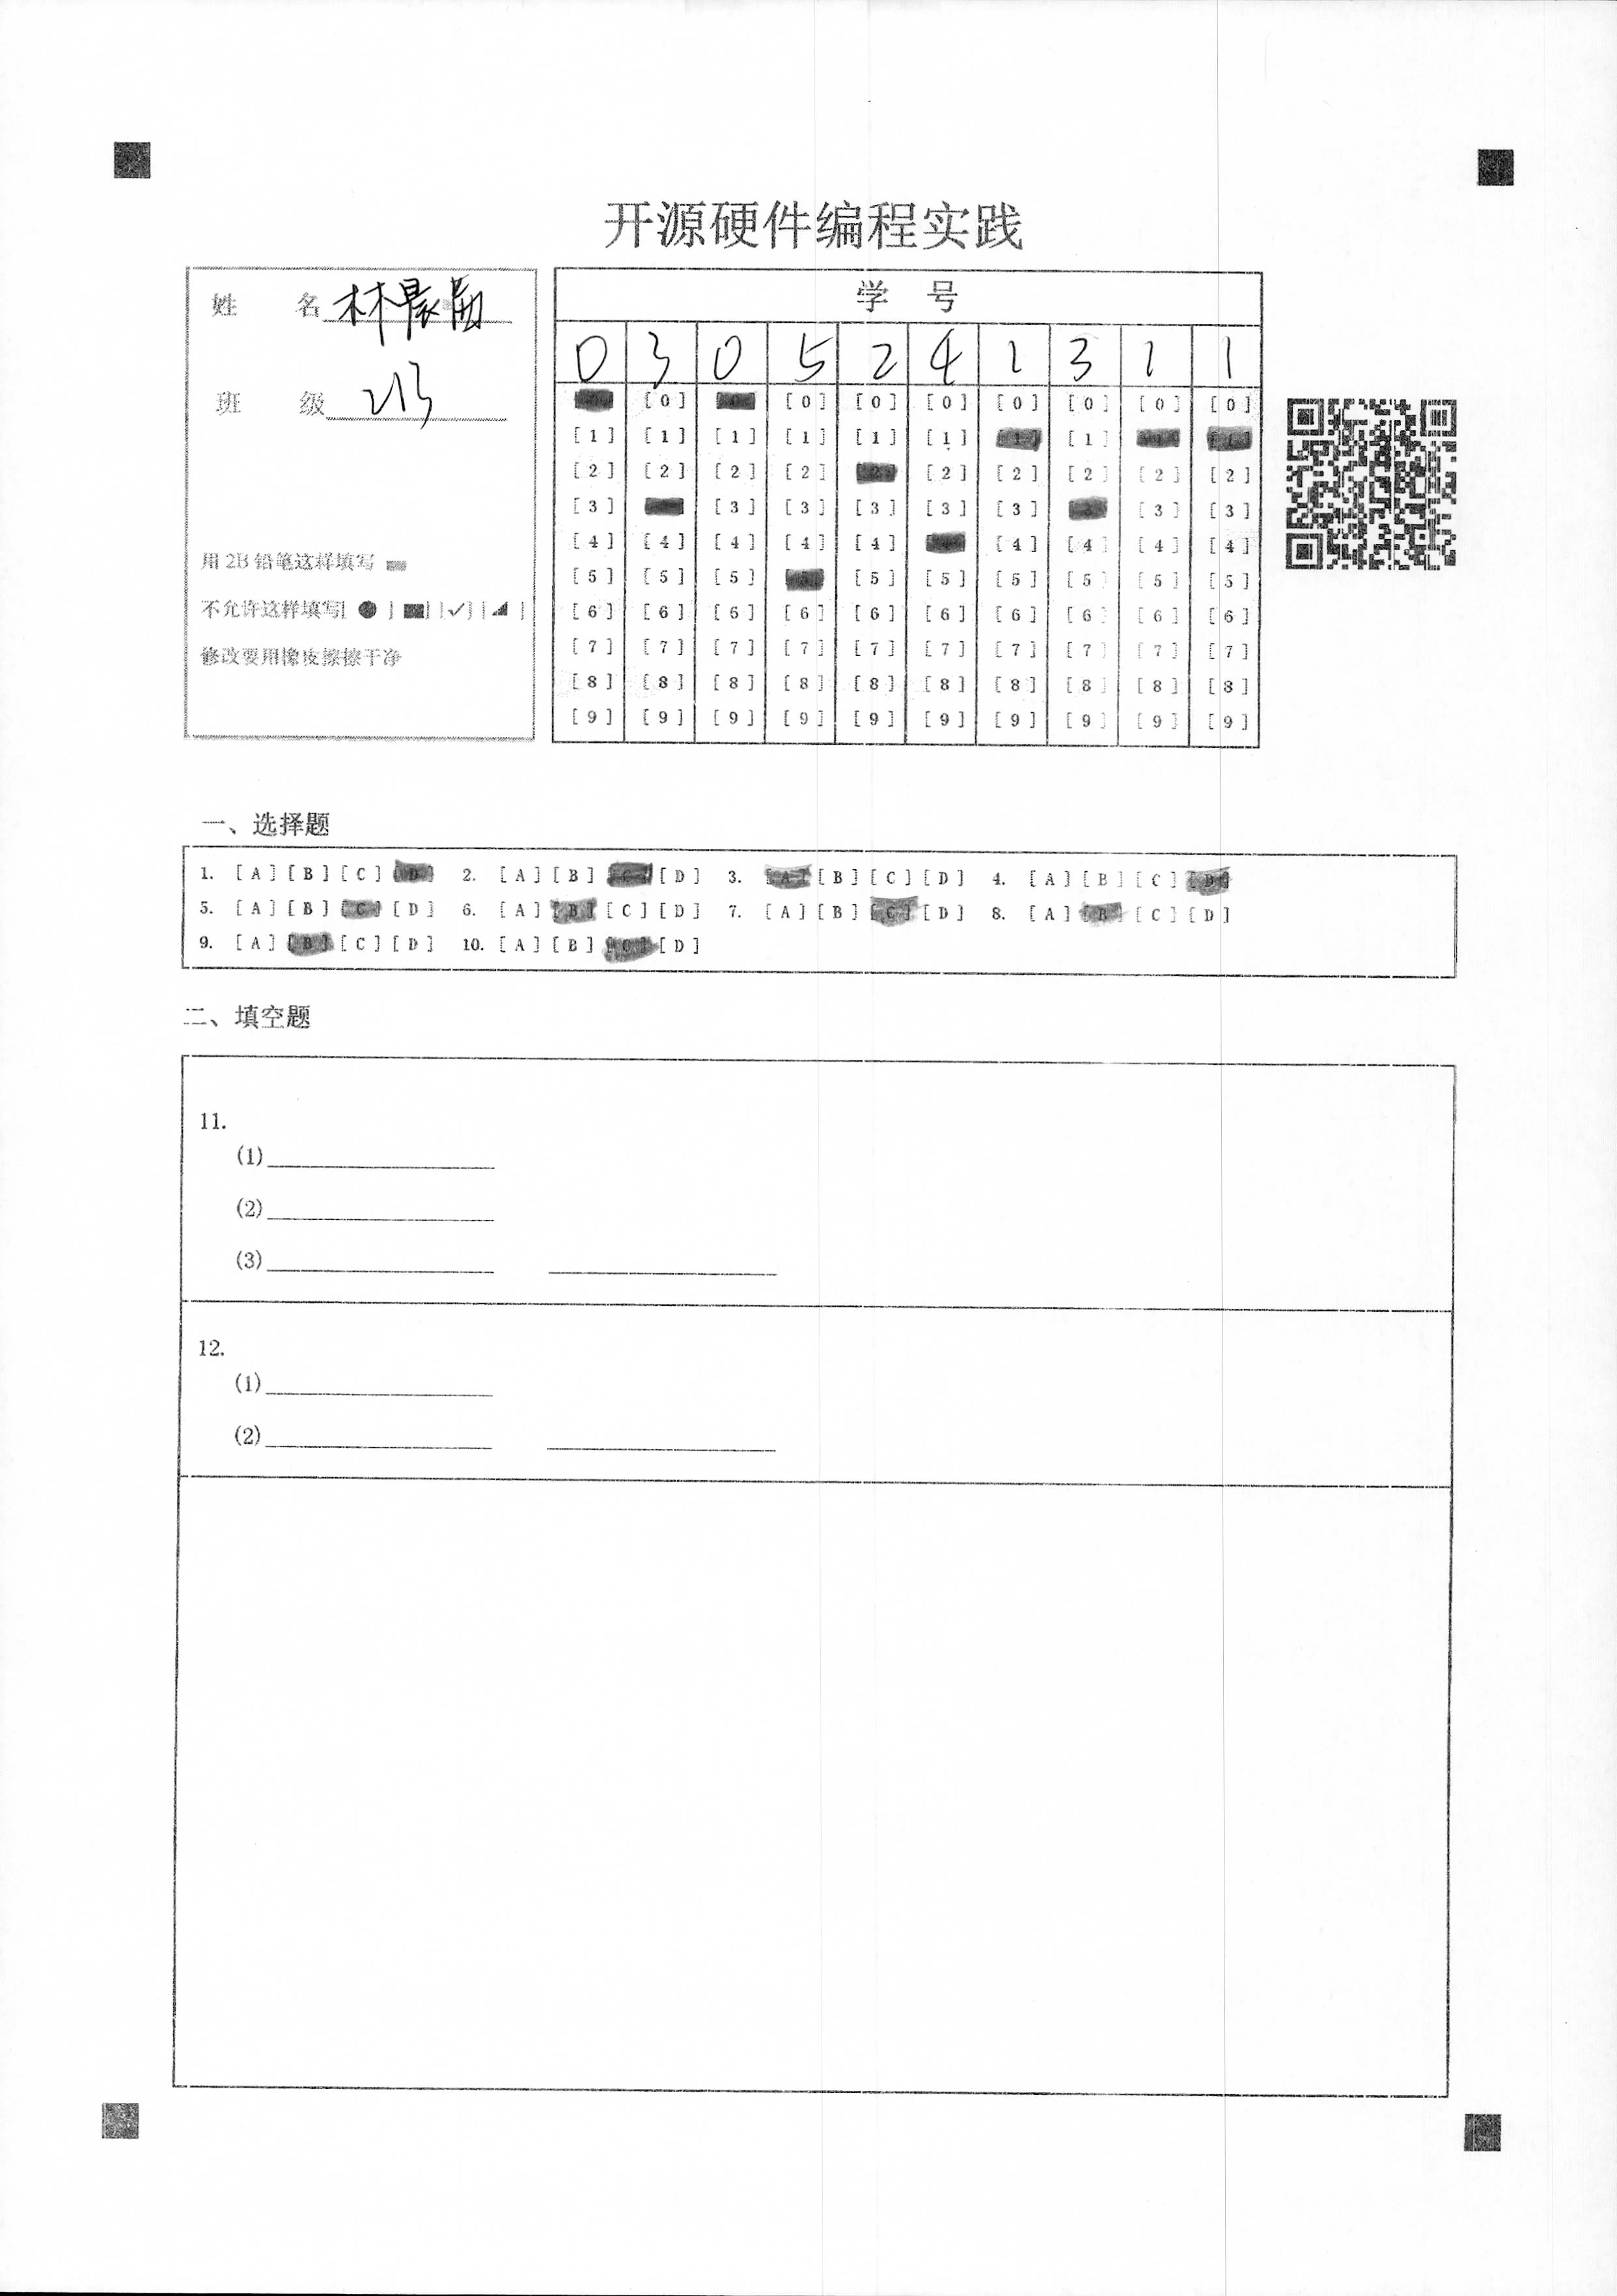 开源硬件编程实践
姓 名 林晨
班 级 213
用 2B 铅笔这样填写
不允许这样填写[ ● ] [■] [✓] [◢ ]
修改要用橡皮擦擦干净
学 号
0 3 0 5 2 4 1 3 1 1
[0] [0] [0] [0] [0] [0] [0] [0]
[1] [1] [1] [1] [1] [1] [1] [1] [1] [1]
[2] [2] [2] [2] [2] [2] [2] [2] [2] [2]
[3] [3] [3] [3] [3] [3] [3] [3]
[4] [4] [4] [4] [4] [4] [4] [4] [4] [4]
[5] [5] [5] [5] [5] [5] [5] [5] [5]
[6] [6] [6] [6] [6] [6] [6] [6] [6] [6]
[7] [7] [7] [7] [7] [7] [7] [7] [7] [7]
[8] [8] [8] [8] [8] [8] [8] [8] [8] [8]
[9] [9] [9] [9] [9] [9] [9] [9] [9] [9]
一、选择题
1. [A] [B] [C] [D] 2. [A] [B] [C] [D] 3. [A] [B] [C] [D] 4. [A] [B] [C] [D]
5. [A] [B] [C] [D] 6. [A] [B] [C] [D] 7. [A] [B] [C] [D] 8. [A] [B] [C] [D]
9. [A] [B] [C] [D] 10. [A] [B] [C] [D]
二、填空题
11.
(1)
(2)
(3)
12.
(1)
(2)